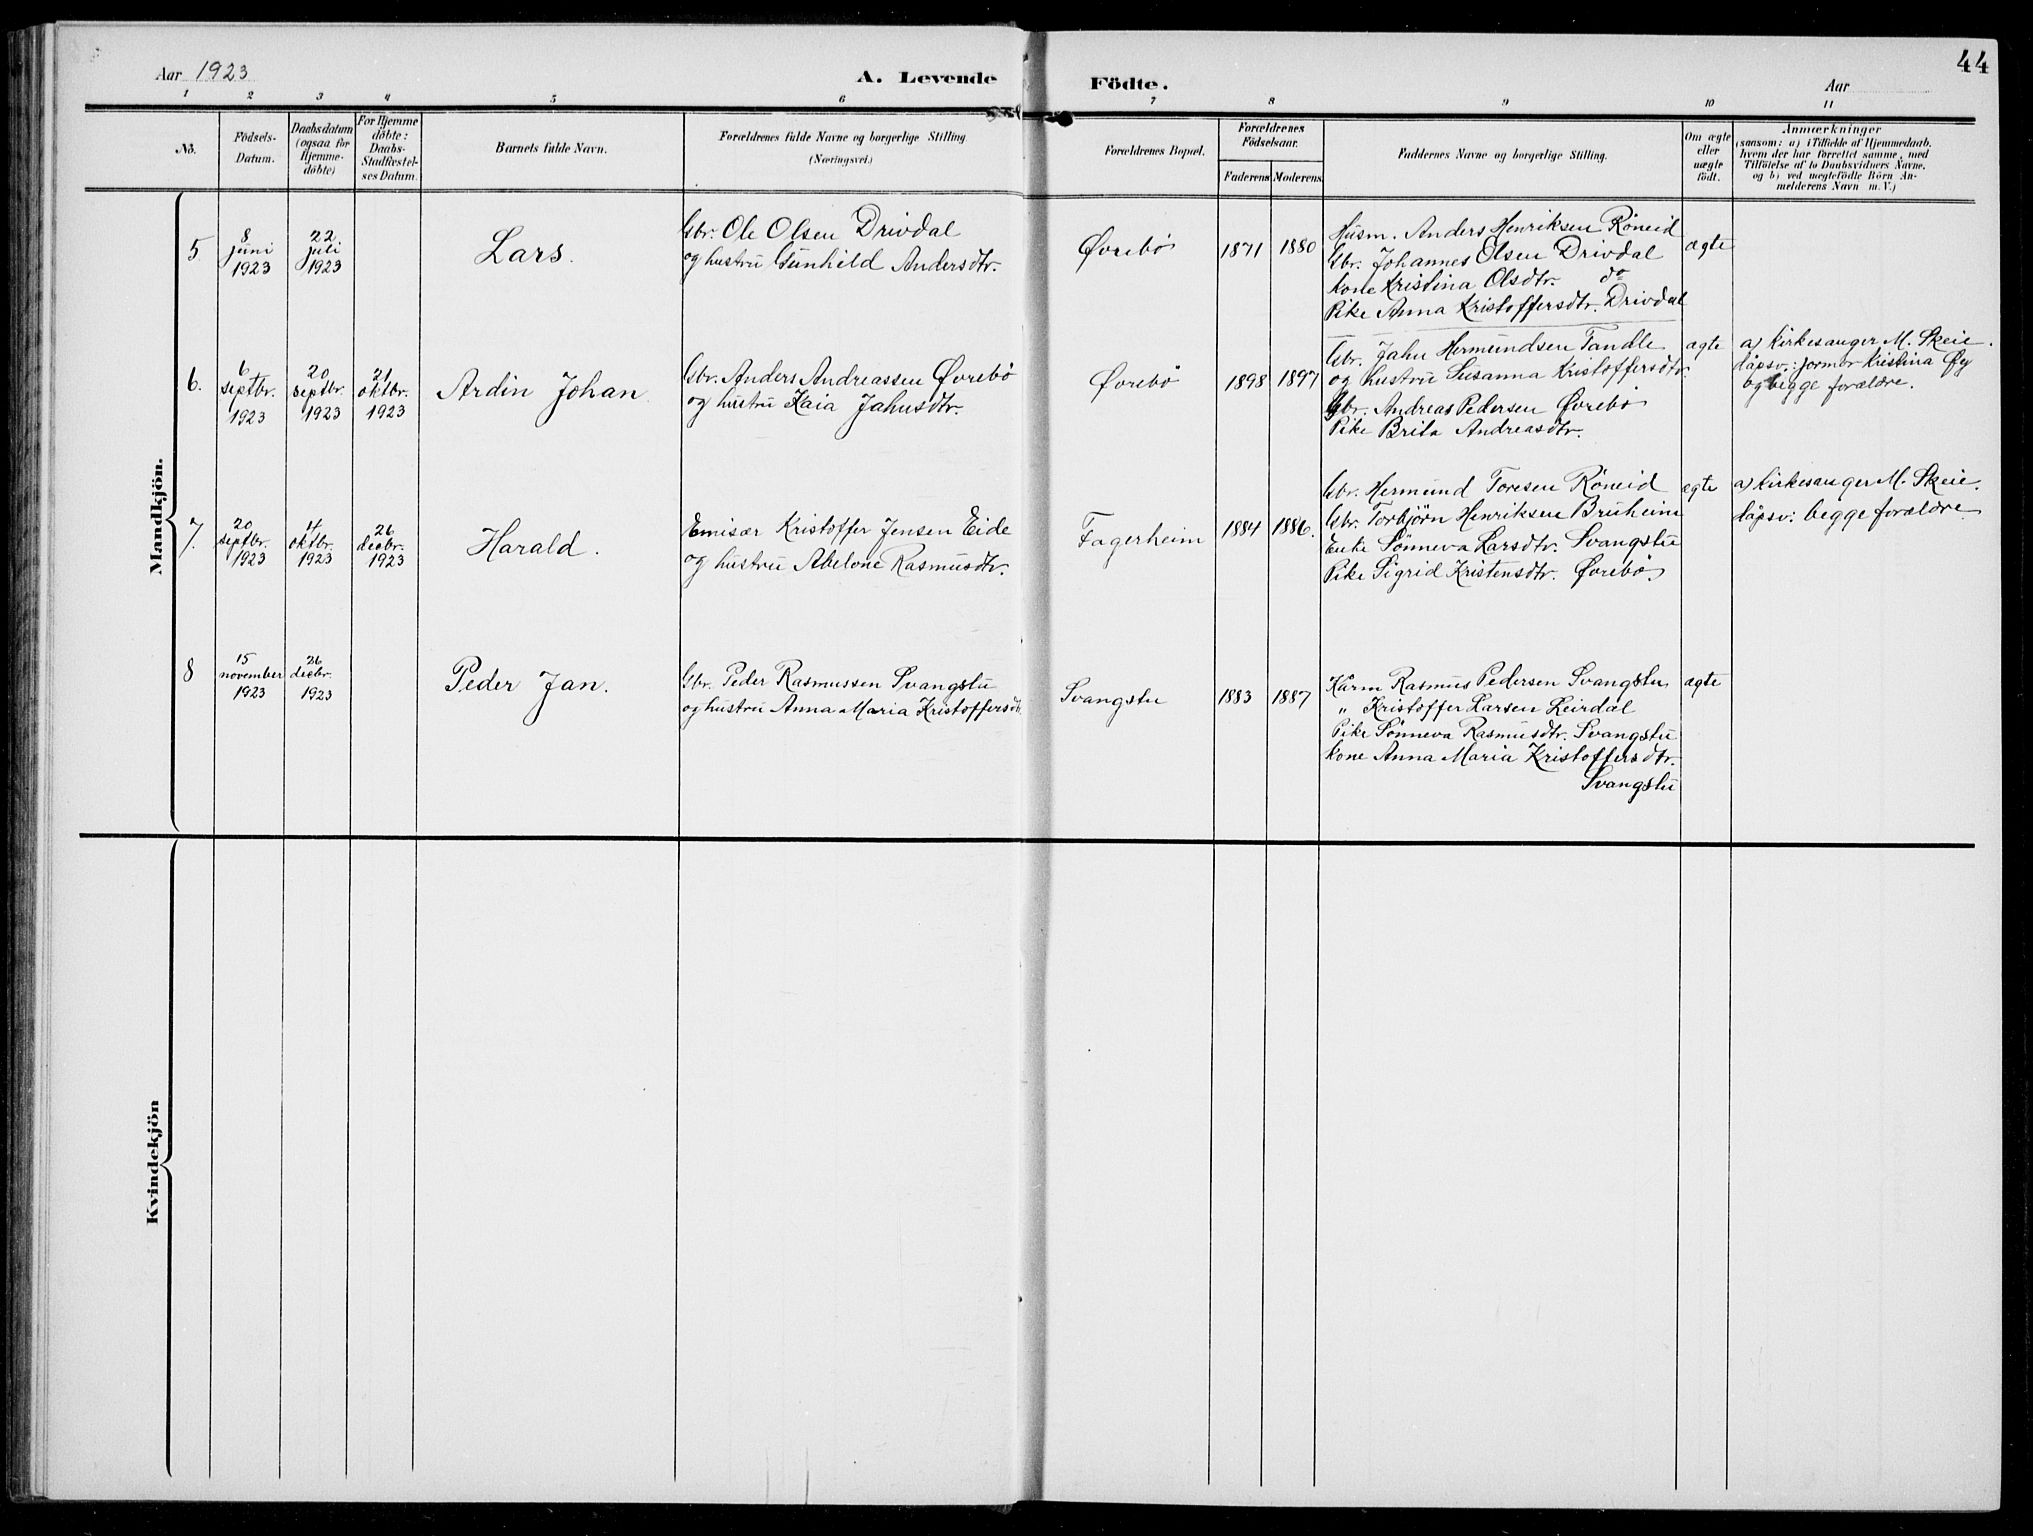 44
Aar 1923
A. Levende Födte.
Aar
1 2 3 4 5 6 7 8 9 10 11
No.
Födsels-
Datum.
Daabsdatum
(ogsaa for
Hjemme-
döbte)
For Hjemme
döbte:
Daabs-
Stadfæstel-
ses Datum.
Barnets fulde Navn.
Forældrenes fulde Navne og borgerlige Stilling
(Næringsvei.)
Forældrenes Bopæl.
Forældrenes
Födselsaar.
Faderens
Moderens
Faddernes Navne og borgerlige Stilling.
Om ægte
eller
uægte
födt.
Anmærkninger
(saasom: a) i Tilfælde af Hjemmedaab.
hvem der har forrettet samme, med
Tilföielse af to Daabsvidners Navne.
og b) ved uægtefödte Börn An-
melderens Navn m. V.)
Mandkjön.
5
8
juni
1923
22
juli
1923
Lars.
Gbr. Ole Olsen Drivdal
og hustru Gunhild Andersdtr.
Øvrebø
1871
1880
Husm. Anders Henriksen Röneid
Gbr. Johannes Olsen Drivdal
Kone Kristina Olsdtr. do
Pike Anna Kristoffersdtr. Drivdal
ægte
6.
6
septbr.
1923
20
septbr.
1923
21
oktbr.
1923
Ardin Johan
Gbr. Anders Andreassen Øvrebö
og hustru Kaia Jahnsdtr.
Øvrebø
1898
1897
Gbr. Jahn Hermundsen Tandle
og hustru Susanna Kristoffersdtr.
Gbr. Andreas Pedersen Øvrebö
Pike Brita Andreasdtr.
ægte
a) Kirkesanger M. Skeie.
dåpsv.: jormor Kristina Øy
og begge forældre.
7.
20
septbr.
1923
4
oktbr.
1923
26
decbr.
1923
Harald.
Emisær Kristoffer Jensen Eide
og hustru Abelone Rasmusdtr.
Fagerheim
1884
1886.
Gbr. Hermund Toresen Röneid
Gbr. Torbjörn Henriksen Bruheim
Enke Sönneva Larsdtr. Svangstu
Pike Sigrid Kristensdtr. Øvrebö.
ægte
a) Kirkesanger M. Skeie.
dåpsv: begge forældre.
8
15
november
1923
26
decbr.
1923
Peder Jan.
Gbr. Peder Rasmussen Svangstu
og hustru Anna Maria Kristoffersdtr.
Svangstu
1883
1887
Kårm Rasmus Pedersen Svangstu
" Kristoffer Larsen Leirdal
Pike Sönneva Rasmusdtr. Svangstu
Kone Anna Maria Kristoffersdtr.
Svangstu
ægte
Kvindekjön